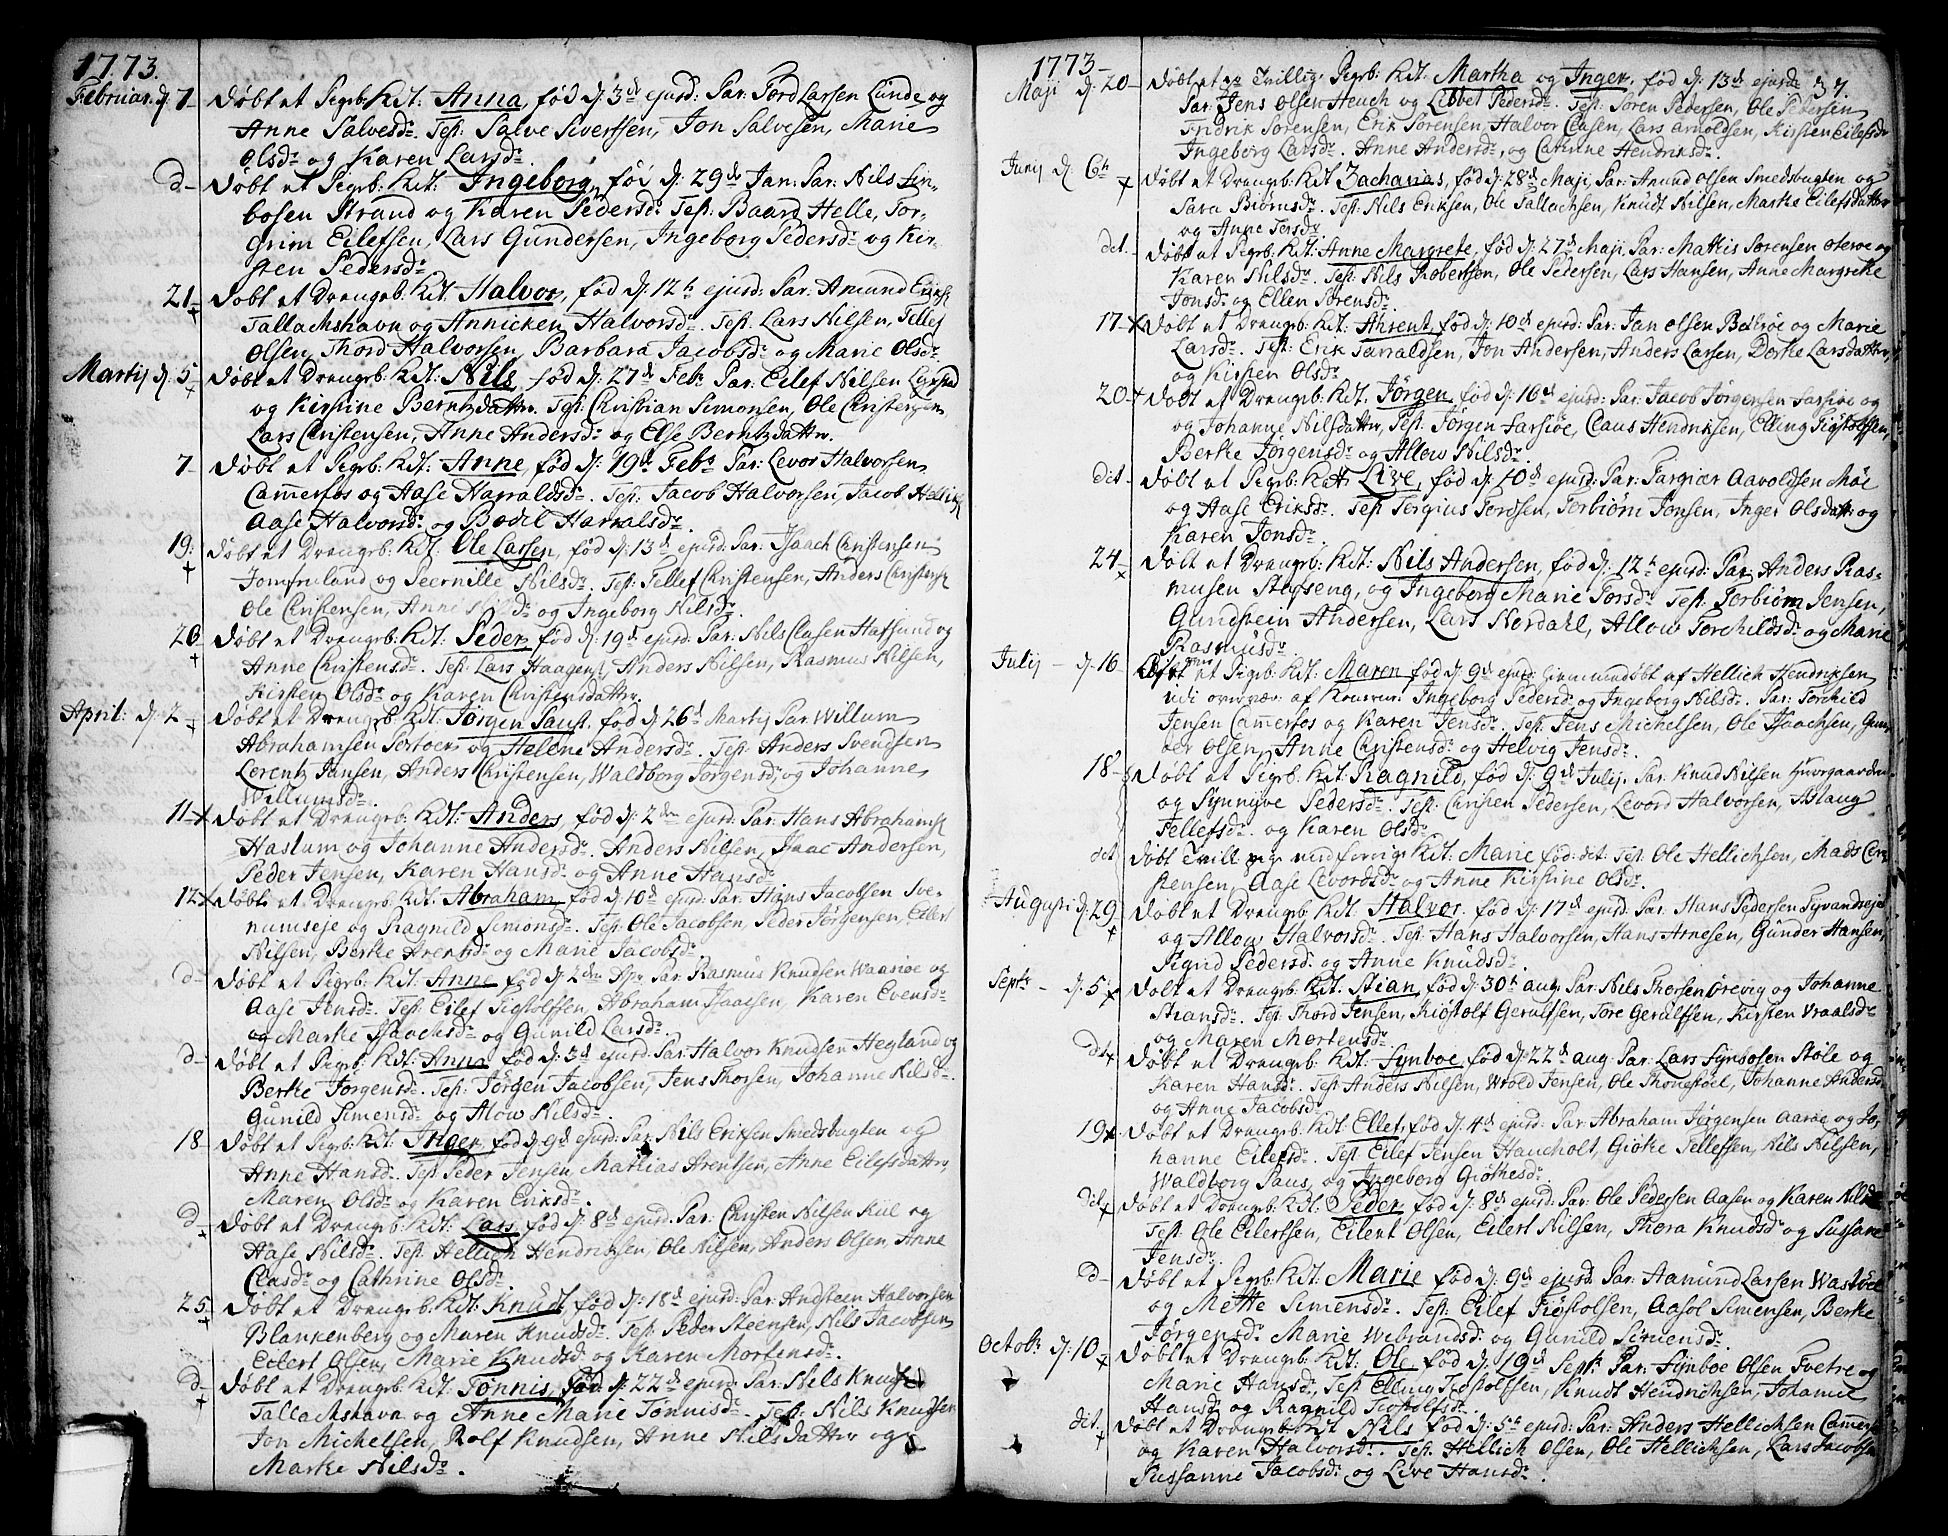 1773.
Februar. d. 7 – Døbt et Pigeb: kdt: Anna, fød d. 3de ejusd: Par: Tord Larsen Lunde og
Anne Salvesdr. Test: Salve Sivertsen, Jon Salvesen, Marie
Olsdr og Karen Larsdr.
d – Døbt et Pigeb: kdt: Ingeborg, fød d: 29de Jan: Par: Nils Sin-
bosen Strand og Karen Pedersdr Test: Baard Helle, Tor-
grim Eilefsen, Lars Gundersen, Ingeborg Pedersdr og Kir-
sten Pedersdr
21 – Døbt et Drengeb: kdt: Halvor, fød d: 12te ejusd: Par: Amund Eriks:
Tallachshavn og Annicken Halvorsdr. Test: Lars Nilsen, Tellef
Olsen, Thord Halvorsen, Barbara Jacobsdr og Marie Olsdr
Martij d. 5 – Døbt et Drengeb: kdt: Nils, fød d: 27de Febr Par: Eilef Nilsen
og Kirstine Berntzdattr. Test: Christian Simonsen, Ole Christensen
Lars Christensen, Anne Andersdr og Else Berntzdattr.
7 – Døbt et Pigeb: kdt: Anne, fød d: 19de Febr Par: Levor Halvorsen
Camerfos og Aase Harraldsdr. Test: Jacob Halvorsen, Jacob
Aase Halvorsdr og Bodil Harralsdr.
19: Døbt et Drengeb: kdt: Ole Larsen, fød d: 13de ejusd: Par: Isaach Christensen
Jomfruland og Peernille Nilsdr. Test: Tellef Christensen, Anders Christens:
Ole Christensen, Anne dr og Ingeborg Nilsdr.
26 Døbt et Drengeb: kdt: Peder, fød d: 19de ejusd: Par: Nils Clasen Hafsund og
Anne Christensdr. Test: Lars Haagens:, Anders Nilsen, Rasmus Nilsen,
Kirsten Olsdr og Karen Christensdattr.
April: d. 2 – Døbt et Drengeb: kdt: Jørgen Paust, fød d: 26de Martij Par: Willum
Abrahamsen Portoer og Helene Andersdr. Test: Anders Svendsen
Lorentz Jansen, Anders Christensen, Waldborg Jørgensdr og Johanne
Willumsdr.
11 – Døbt et Drengeb: kdt: Anders, fød d: 2den ejusd: Par: Hans Abrahams:
Haslum og Johanne Andersdr. Anders Nilsen, Isaac Andersen,
Peder Jensen, Karen Hansdr og Anne Hansdr
12 Døbt et Drengeb: kdt: Abraham, fød d: 10de ejusd: Par: Hans Jacobsen Sve-
numseje og Ragnild Simonsdr. Test: Ole Jacobsen, Peder Jørgensen, Eilert
Nilsen, Berthe Arentsdr og Marie Jacobsdr.
d – Døbt et Pigeb: kdt: Anne fød d: 2den Apr Par: Rasmus Knudsen Waasiøe og
Aase Jensdr. Test: Eilef Kiøstolfsen, Abraham Isaacsen, Karen Evensdr
og Marthe Isaachsdr og Gunild Larsdr.
d – Døbt et Pigeb: kdt: Anna fød d: 3de ejusd: Par: Halvor Knudsen Hegland og
Berthe Jørgensdr. Test: Jørgen Jacobsen, Jens Thorsen, Johanne Nilsdr.
Gunild Simensdr og Alow Nilsdr.
18 Døbt et Pigeb: kdt: Inger, fød d: 9de ejusd: Par: Nils Eriksen Smedsbugten og
Anne Hansdr. Test: Peder Jensen, Mathias Arentsen, Anne Eilefsdattr,
Maren Olsdr og Karen Eriksdr.
d – Døbt et Drengeb: kdt: Lars, fød d: 8de ejusd: Par: Christen Nilsen Kiil og
Aase Nilsdr. Test: Hellich Hendrichsen, Ole Nilsen, Anders Olsen, Anne
Clasdr og Cathrine Olsdr.
25 – Døbt et Drengeb: kdt: Knudt, fød d: 18de ejusd: Par: Andsteen Halvorsen
Blankenberg og Maren Knudsdr. Test: Peder Steensen, Nils Jacobsen,
Eilert Olsen, Marie Knudsdr og Karen Mortensdr.
d – Døbt et Drengeb: kdt: Tønnis, fød d: 22de ejusd: Par: Nils Knudsen
Tallachshavn og Anne Marie Tønnisdr. Test: Nils Knudsen
Jon Michelsen, Rolf Knudsen, Anne Nilsdattr og
Marthe Nilsdr.
1773 –
37.
Maji d. 20 – Døbt et Tvillig: Pigeb: kdt: Martha og Inger, fød d: 13de ejusd:
Par: Jens Olsen Heuch og Libbet Pedersdr. Test: Søren Pedersen, Ole Pedersen
Fridrik Sørensen, Erik Sørensen, Halvor Clasen, Lars Arnoldsen, Kirsten Eilefsdr
Ingeborg Larsdr. Anne Andersdr, og Cathrine Hendriksdr.
Junij d. 6te Døbt et Drengeb: kdt Zacharias, fød d: 28de Maji, Par: Amund Olsen Smedsbugten og
Sara Biørnsdr. Test: Nils Eriksen, Ole Tallachsen, Knudt Nilsen, Marthe Eilefsdattr
og Anne Torsdr
det – Døbt et Pigeb: kdt: Anne Margrete, fød d: 27de Maji Par: Mathis Sørensen Øteroe og
Karen Nilsdr. Test: Nils Robertsen, Ole Pedersen, Lars Hansen, Anne Margrethe
Jonsdr og Ellen Sørensdr.
17 – Døbt et Drengeb: kdt: Ahrent, fød d: 10de ejusd: Par: Jan Olsen og Marie
Larsdr. Test: Erik Tarraldsen, Jon Andersen, Anders Larsen, Dorthe Larsdattr,
og Kirsten Olsdr
20 – Døbt et Drengeb: kdt: Jørgen fød d: 16de ejusd: Par: Jacob Jørgensen Farsiøe og
og Johanne Nilsdattr, Test: Jørgen Farsiøe, Claus Hendriksen, Elling Kiøstolfsen,
Berthe Jørgensdr og Allow Nilsdr.
dit – Døbt et Pigeb: kdt: Live, fød d: 10de ejusd: Par: Targiær Aavoldsen Møe
og Aase Eriksdr. Test Torgius Tordsen, Torbiørn Jonsen, Inger Olsdattr og
Karen Jonsdr.
24 – Døbt et Drengeb: kdt: Nils Andersen, fød d: 12te ejusd: Par: Anders Ras-
musen Stafseng, og Ingeborg Marie Torsdr Test: Torbiørn Jensen,
Gundstein Andersen, Lars Nordahl, Allow Torchildsdr og Marie
Rasmusdr.
Julij – d. 16 – et Pigeb: kdt: Maren fød d: 9de ejusd: hiemmedøbt af Hellich Hendriksen
udi overvær af Ingeborg Pedersdr og Ingeborg Nilsdr. Par: Torchild
Jensen Camerfos og Karen Jensdr. Test: Jens Michelsen, Ole Isaachsen, Gun-
der Olsen, Anne Christensdr og Helvig Jensdr.
18 – Døbt et Pigeb: kdt: Ragnild, fød d: 9de Julij. Par: Knud Nilsen
og Synnyve Pedersdr. Test: Christen Pedersen, Levord Halvorsen, Aslaug
Tellefsdr. og Karen Olsdr
det Døbt Tvillig med forrige kdt: Marie fød: det: Test: Ole Hellichsen, Mads Chri-
stensen, Aase Levordsdr og Anne Kirstine Olsdr.
Augusti d. 29 Døbt et Drengeb: kdt: Halvor. fød d: 17de ejusd: Par: Hans Pedersen
og Allow Halvorsdr. Test: Hans Halvorsen, Hans Arnesen, Gunder Hansen,
Sigrid Pedersdr og Anne Knudsdr.
Septr – d. 5 Døbt et Drengeb: kdt: Stian, fød d: 30te aug: Par: Nils Thorsen Ørevig og Johanne
Stiansdr. Test: Thord Jensen, Kiøstolf Gerulfsen, Tore Gerulfsen, Kirsten Wraalsdr
og Maren Mortensdr.
dt Døbt et Drengeb: kdt: Synboe fød d: 22de aug: Par: Lars Synbosen Støle og
Karen Hansdr. Test: Anders Nilsen, Wrold Jensen, Ole Thonestøel, Johanne Andersdr
og Anne Jacobsdr
19 Døbt et Drengeb: kdt: Ellef, fød d: 4de ejusd: Par: Abraham Jørgensen Aarøe og Jo-
hanne Eilefsdr. Test: Eilef Jensen Haucholt, Giøthe Tellefsen, Nils Nilsen,
Waldborg Paus, og Ingeborg Giøthesdr.
dit Døbt et Drengeb: kdt: Peder, fød d: 8de ejusd: Par: Ole Pedersen Aasen og Karen Nilsdr
Test: Ole Eilertsen, Eilert Olsen, Eilert Nilsen, Thora Knudsdr og Sussane
Jensdr.
d – Døbt et Pigeb: kdt: Marie fød d: 9de ejusd: Par: Aamund Larsen
og Mette Simensdr. Test: Eilef Kiøstolsen, Aasol Simensen, Berthe
Jørgensdr Marie Webrandsdr og Gunild Simensdr.
Octobr d. 10 Døbt et Drengeb: kdt: Ole fød d: 19de Septr: Par: Synboe Olsen Tvetre og
Marie Hansdr. Test Elling Kiøstolfsen, Knudt Hendrichsen, Johanne
Hansdr og Ragnild Kiøstolfsdr.
dit: Døbt et Drengeb: kdt Nils fød d: 5te ejusd: Par: Anders Hellichsen Camerfos
og Karen Halvorsdr. Test: Hellich Olsen, Ole Hellichsen, Lars Jacobsen
Sussanne Jacobsdr og Live Hansdr.